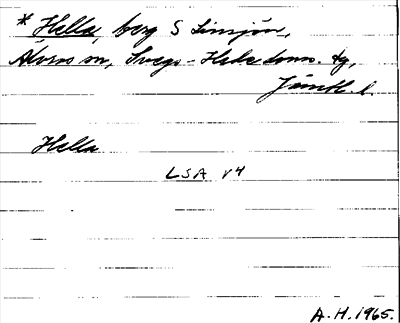 * Hella, berg S Linsjön,
Älvros sn, Svegs-Hede doms. tg,
Jämtl. l.
Hella
LSA V4
A.H. 1965.